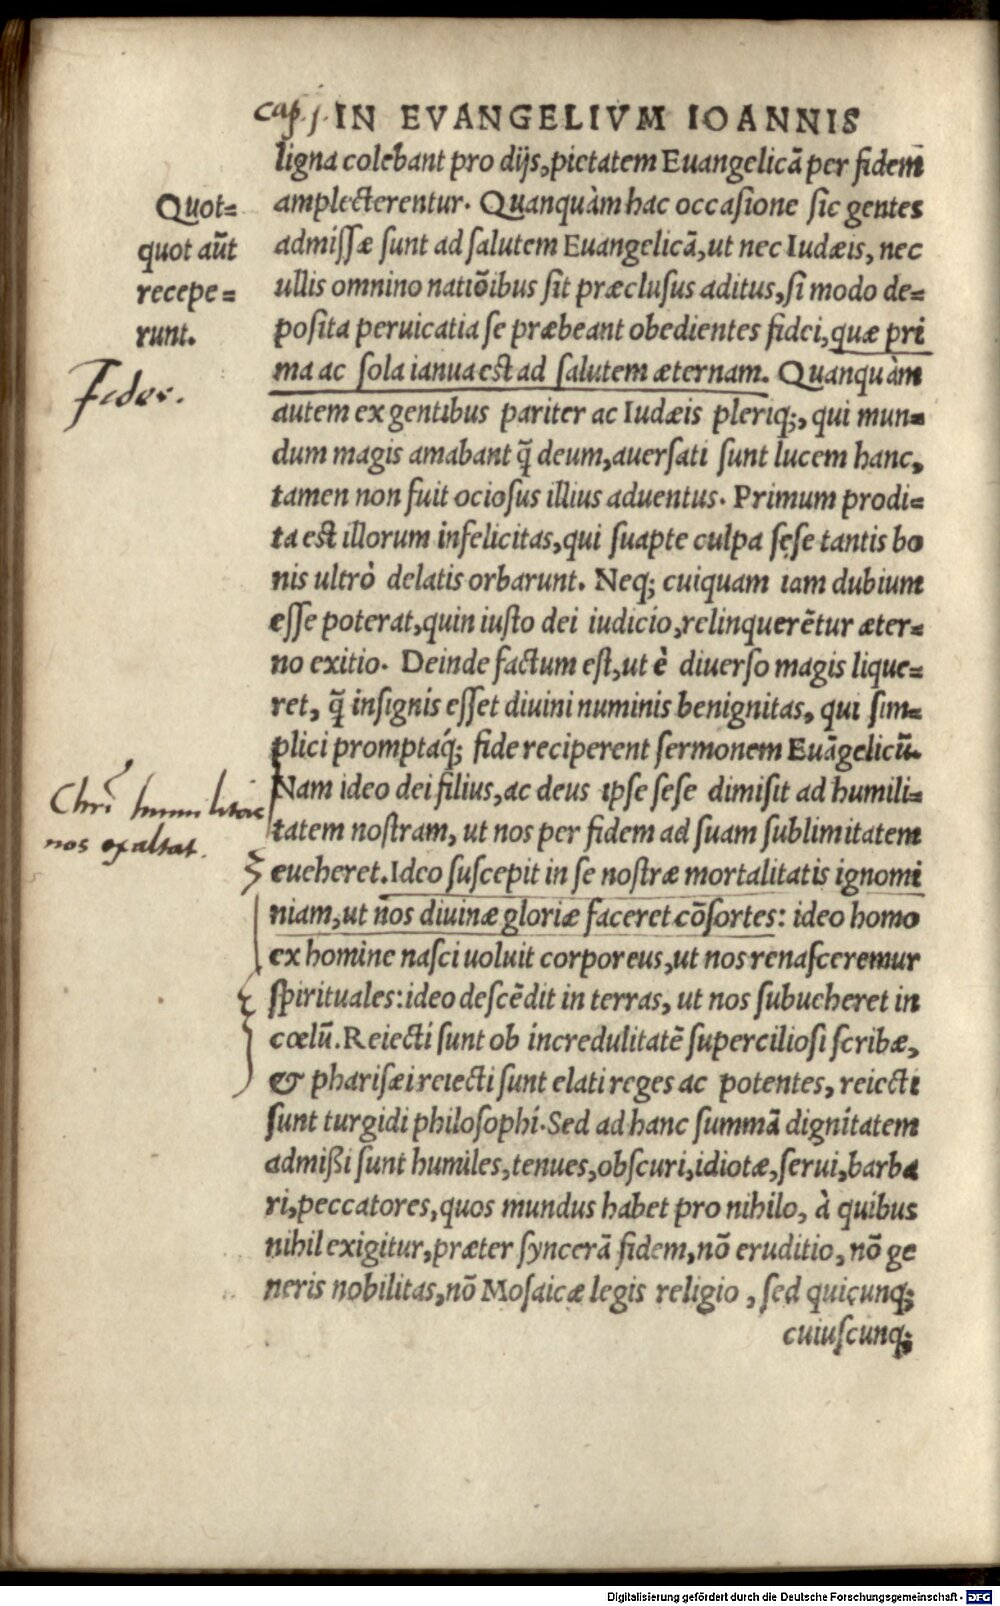 cap. j. IN EVANGELIVM IOANNIS
ligna colebant pro dijs, pietatem Euangelicā per fidem
Quot=
amplecterentur. Quanquàm hac occasione sic gentes
quot aūt
admissæ sunt ad salutem Euangelicā, ut nec Iudæis, nec
recepe=
ullis omnino natiōibus sit præclusus aditus, si modo de=
runt.
posita peruicatia se præbeant obedientes fidei, quæ pri
Fides.
ma ac sola ianua est ad salutem æternam. Quanquàm
autem ex gentibus pariter ac Iudæis pleriq;, qui mun=
dum magis amabant q̄ deum, auersati sunt lucem hanc,
tamen non fuit ociosus illius aduentus. Primum prodi=
ta est illorum infelicitas, qui suapte culpa sese tantis bo
nis ultrò delatis orbarunt. Neq; cuiquam iam dubium
esse poterat, quin iusto dei iudicio, relinquerētur æter=
no exitio. Deinde factum est, ut è diuerso magis lique=
ret, q̄ insignis esset diuini numinis benignitas, qui sim=
plici promptaq́; fide reciperent sermonem Euāgelicū.
Nam ideo dei filius, ac deus ipse sese dimisit ad humili=
Chrī humilitas
tatem nostram, ut nos per fidem ad suam sublimitatem
nos exaltat.
eueheret. Ideo suscepit in se nostræ mortalitatis ignomi
niam, ut nos diuinæ gloriæ faceret cōsortes: ideo homo
ex homine nasci uoluit corporeus, ut nos renasceremur
spirituales: ideo descēdit in terras, ut nos subueheret in
cœlū. Reiecti sunt ob incredulitatē superciliosi scribæ,
& pharisæi reiecti sunt elati reges ac potentes, reiecti
sunt turgidi philosophi. Sed ad hanc summā dignitatem
admißi sunt humiles, tenues, obscuri, idiotæ, serui, barba
ri, peccatores, quos mundus habet pro nihilo, à quibus
nihil exigitur, præter syncerā fidem, nō eruditio, nō ge
neris nobilitas, nō Mosaicæ legis religio, sed quicunq;
cuiuscunq;
Digitalisierung gefördert durch die Deutsche Forschungsgemeinschaft - DFG